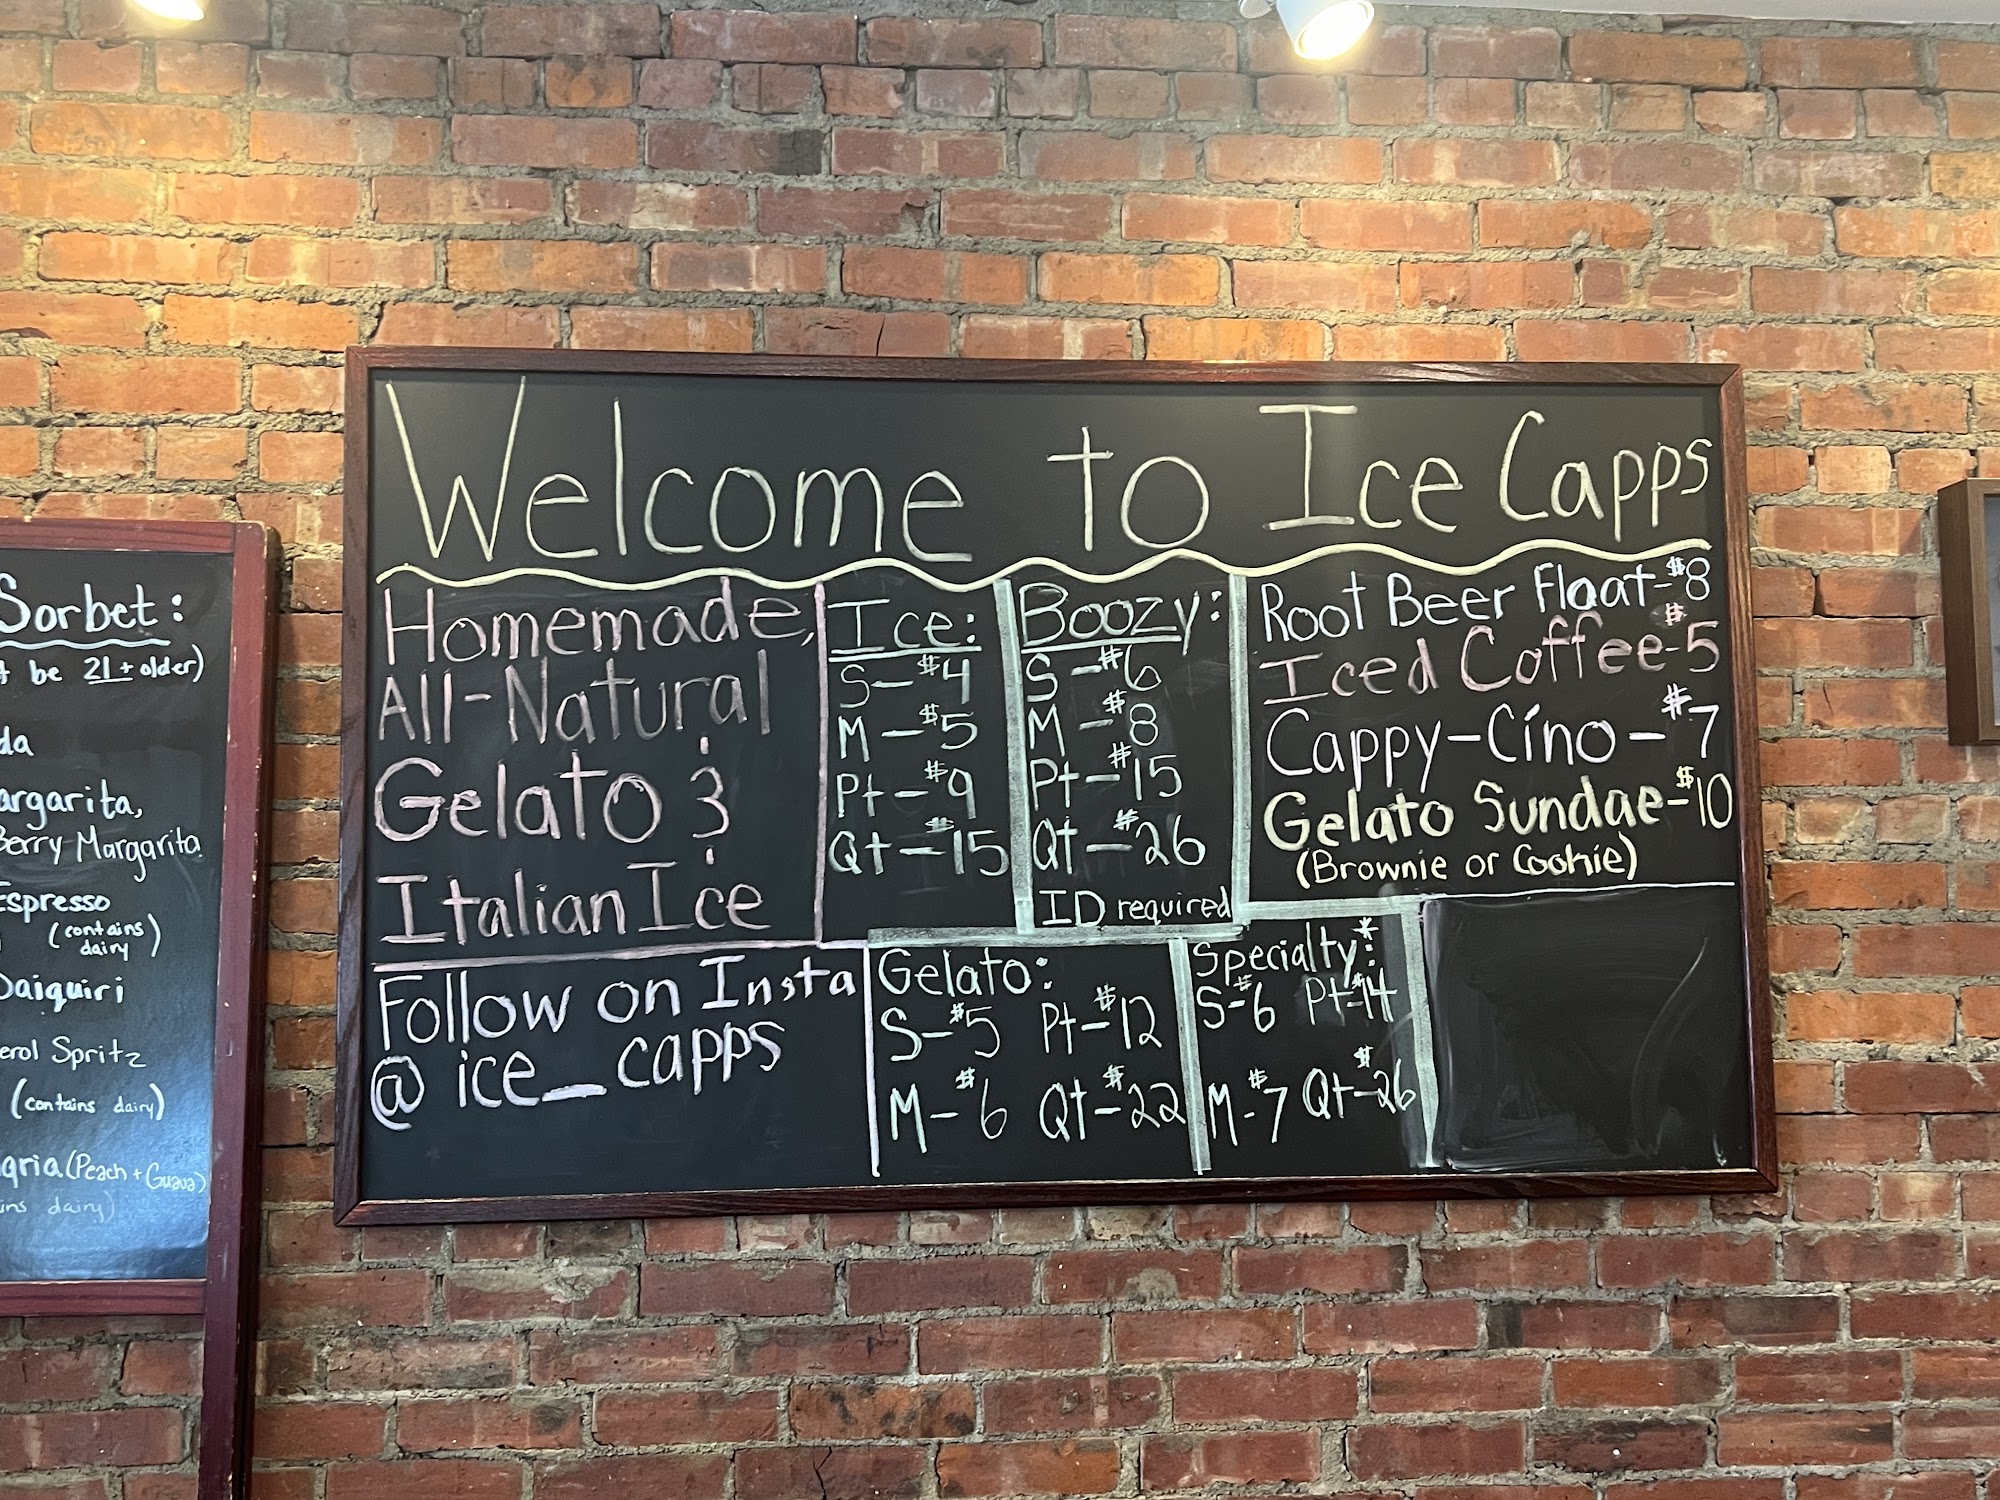 Sorbet:
be 21+ older)
Berry Margarita
Espresso
(contains
dairy)
Daiquiri
Spritz
(contains dairy)
(Peach + Guava)
dairy)
Welcome to Ice Capps
Homemade,
All-Natural
Gelato &
Italian Ice
Follow on Insta
@ ice_capps
Ice:
S-$4
M-$5
Pt-$9
Qt-$15
Boozy:
S-$6
M-$8
Pt-$15
Qt-$26
ID required
Root Beer Float-$8
Iced Coffee-$5
Cappy-Cino-$7
Gelato Sundae-$10
(Brownie or Cookie)
Gelato:
S-$5 Pt-$12
M-$6 Qt-$22
Specialty*:
S-$6 Pt-$14
M-$7 Qt-$26